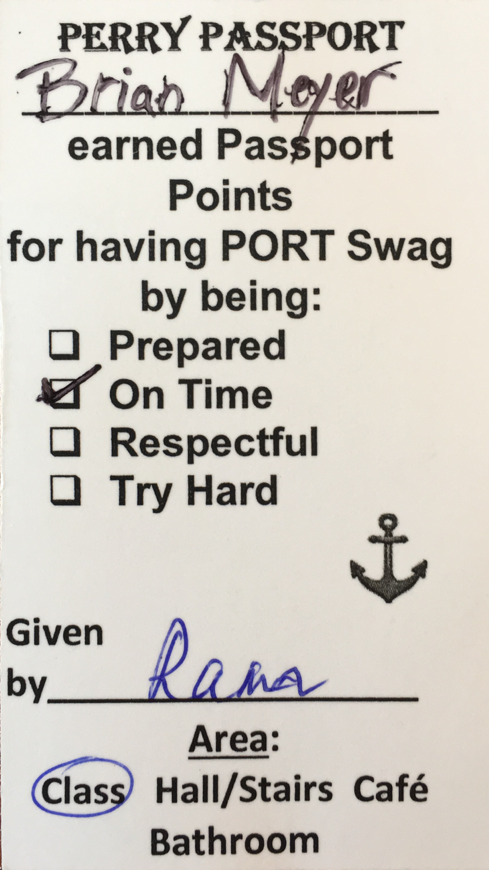 PERRY PASSPORT
Brian Meyer
earned Passport
Points
for having PORT Swag
by being:
Prepared
On Time
Respectful
Try Hard
Given
by Rana
Area:
Class Hall/Stairs Café
Bathroom